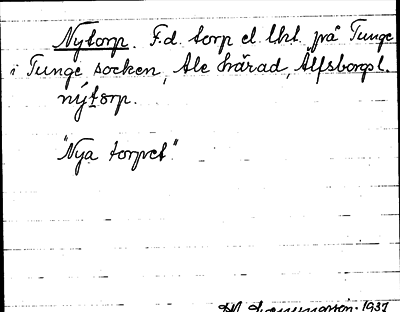 Nytorp. F.d. torp el. lht. på Tunge
i Tunge socken, Ale härad, Älfsborgs l.
nýtorp.
"Nya torpet".
1937